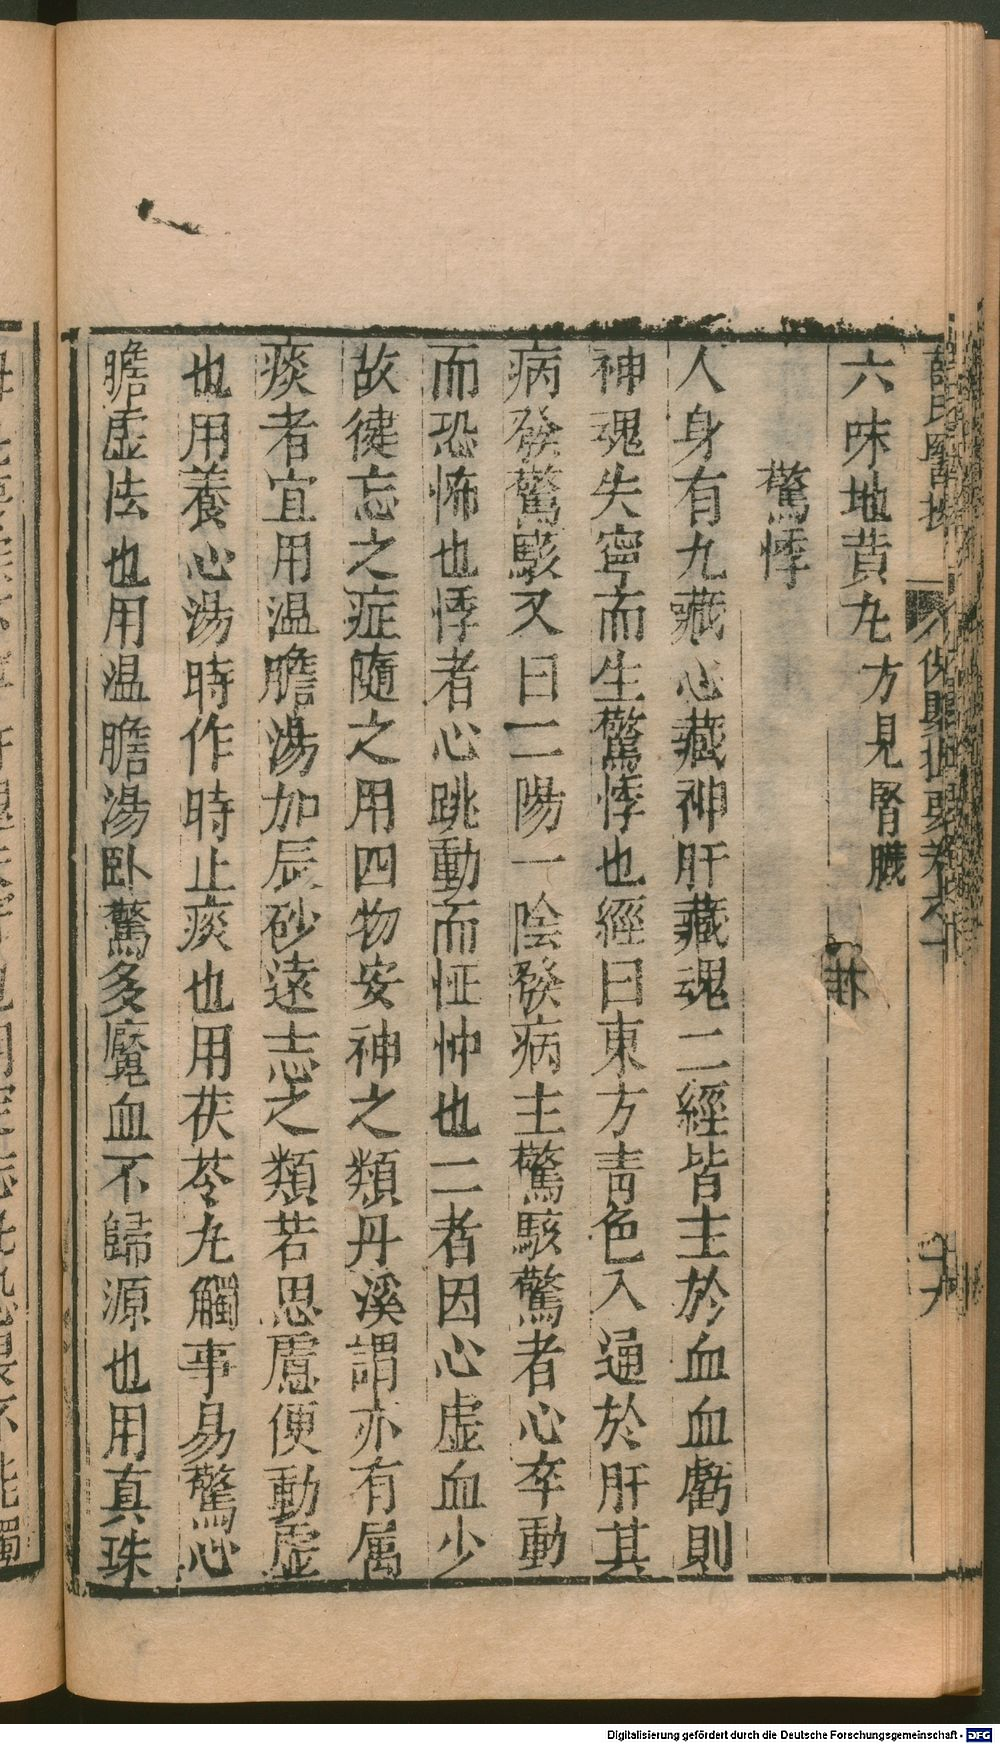 六味地黃丸方見腎臟
驚悸
人身有九藏心藏神肝藏魂二經皆主於血血虧則
神魂失寧而生驚悸也經曰東方青色入通於肝其
病發驚駭又曰二陽一陰發病主驚駭驚者心卒動
而恐怖也悸者心跳動而怔忡也二者因心虛血少
故健忘之症隨之用四物安神之類丹溪謂亦有属
痰者宜用温膽湯加辰砂遠志之類若思慮便動虛
也用養心湯時作時止痰也用茯苓丸觸事易驚心
膽虛怯也用温膽湯卧驚多魘血不歸源也用真珠
Digitalisierung gefördert durch die Deutsche Forschungsgemeinschaft - DFG